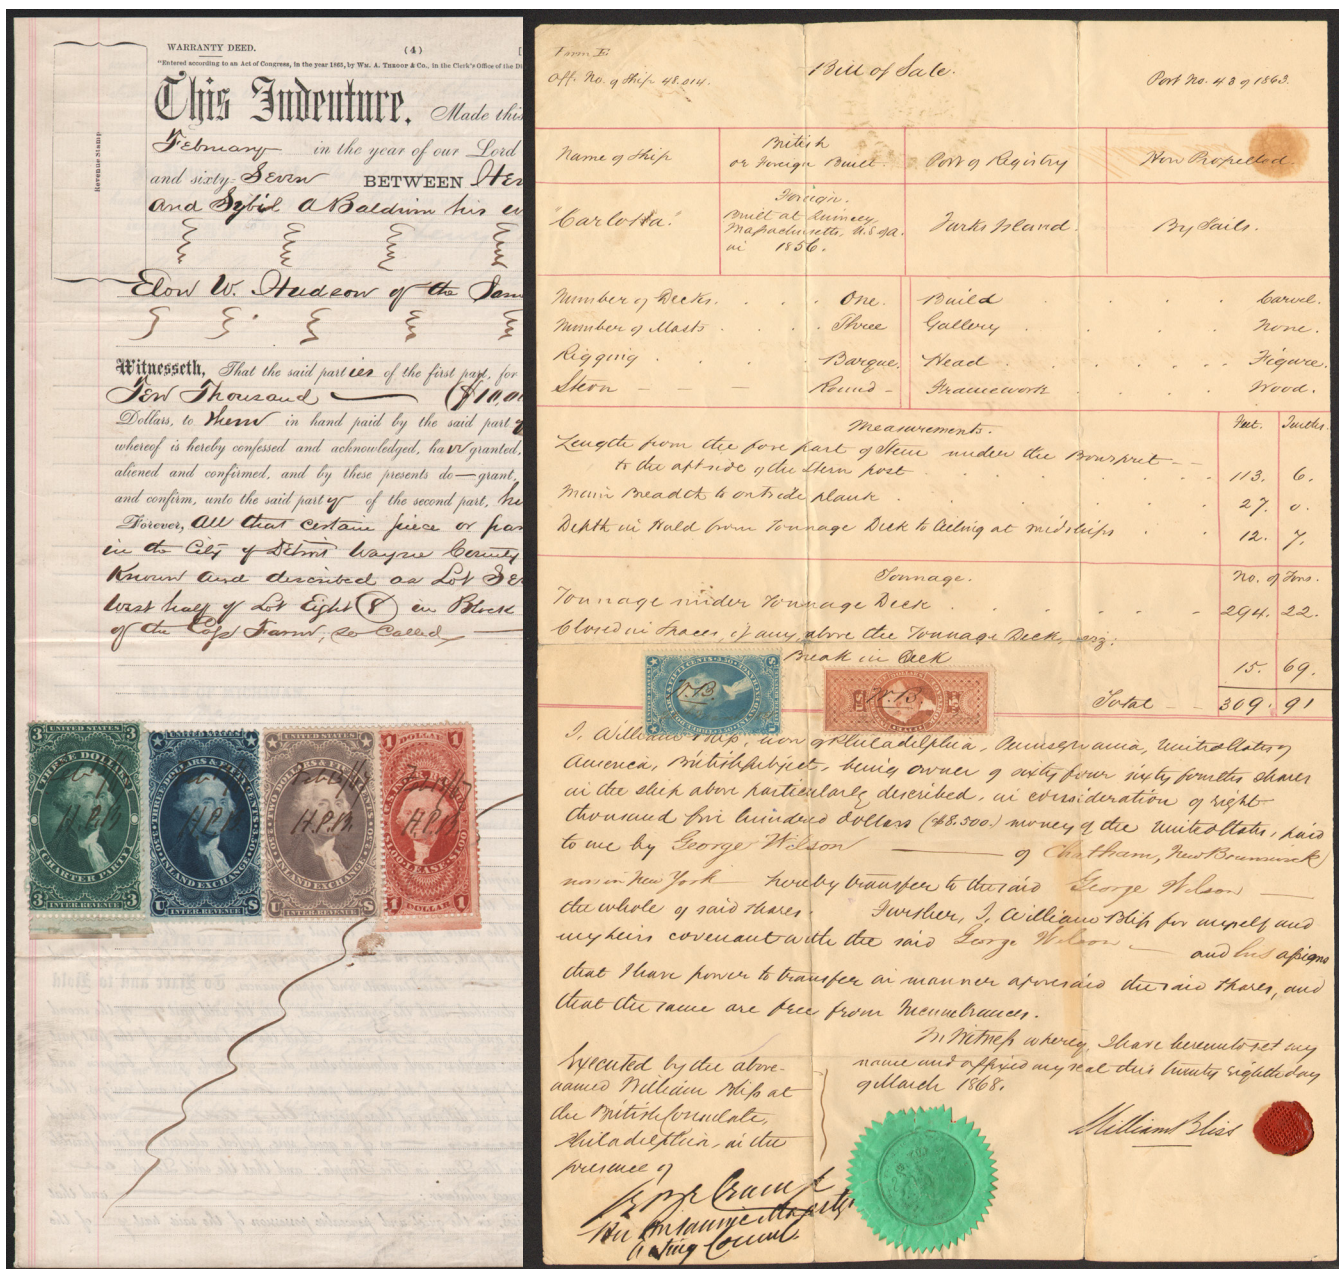 WARRANTY DEED.
(4)
"Entered according to an Act of Congress, in the year 1863, by WM. A. THROOP & CO., in the Clerk's Office of the Di
This Indenture, Made this
Revenue Stamp
February in the year of our Lord
and sixty-Seven BETWEEN Hen
and Sybil A Baldwin his w
Elon W. Hudson of the Sam
Witnesseth, That the said parties of the first part, for
Ten Thousand ($10,00
Dollars, to them in hand paid by the said part y
whereof is hereby confessed and acknowledged, have granted,
aliened and confirmed, and by these presents do — grant,
and confirm, unto the said party of the second part, his
Forever, All that certain piece or par
in the City of Detroit Wayne County
Known and described as Lot Se
West half of Lot Eight (8) in Block
of the Cass Farm, so called
3 UNITED STATES 3
THREE DOLLARS
CHARTER PARTY
3 INTER. REVENUE 3
THREE DOLLARS & FIFTY CENTS $3.50
INLAND EXCHANGE
U INTER. REVENUE S
H.P.B.
UNITED STATES
TWO DOLLARS & FIFTY CENTS
INLAND EXCHANGE
U INTER. REVENUE S
Feb 14/67
H.P.B.
1 DOLLAR 1
LEASE
1 DOLLAR 1
H.P.B.
Form E
Off. No. of Ship 48,014.
Bill of Sale.
Port No. 43 of 1863.
Name of Ship
British or Foreign Built.
Port of Registry
How Propelled
"Carlotta."
Foreign.
Built at Quincy,
Massachusetts, U.S. of A.
in 1856.
Turks Island.
By Sails.
Number of Decks. One. Build Carvel.
Number of Masts Three Gallery None.
Rigging Barque. Head Figure.
Stern Round Framework Wood.
Measurements. Feet. Tenths.
Length from the fore part of Stem under the Bowsprit
to the aft side of the Stern post 113. 6.
Main Breadth to outside plank 27. 0.
Depth in Hold from Tonnage Deck to Ceiling at midships 12. 7.
Tonnage. No. of Tons.
Tonnage under Tonnage Deck 294. 22.
Closed in Spaces, if any, above the Tonnage Deck, viz:
Break in Deck 15. 69.
Total 309. 91
W.B.
W.B.
I, William Bliss, now of Philadelphia, Pennsylvania, United States of
America, British subject, being owner of sixty four sixty fourths shares
in the ship above particularly described, in consideration of eight
thousand five hundred dollars ($8,500.) money of the United States, paid
to me by George Wilson of Chatham, New Brunswick
now in New York hereby transfer to the said George Wilson
the whole of said shares. Further, I, William Bliss for myself and
my heirs covenant with the said George Wilson and his assigns
that I have power to transfer in manner aforesaid the said shares, and
that the same are free from Incumbrances.
In Witness whereof, I have hereunto set my
name and affixed my seal this twenty eighth day
of March 1868.
Executed by the above-
named William Bliss at
the British Consulate,
Philadelphia, in the
presence of
William Bliss
Her Britannic Majesty's
Acting Consul.